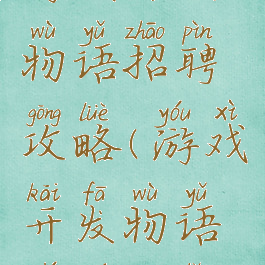 wù yǔ zhāo pìn
物语招聘
gōng lüè yóu xì
攻略(游戏
kāi fā wù yǔ
开发物语